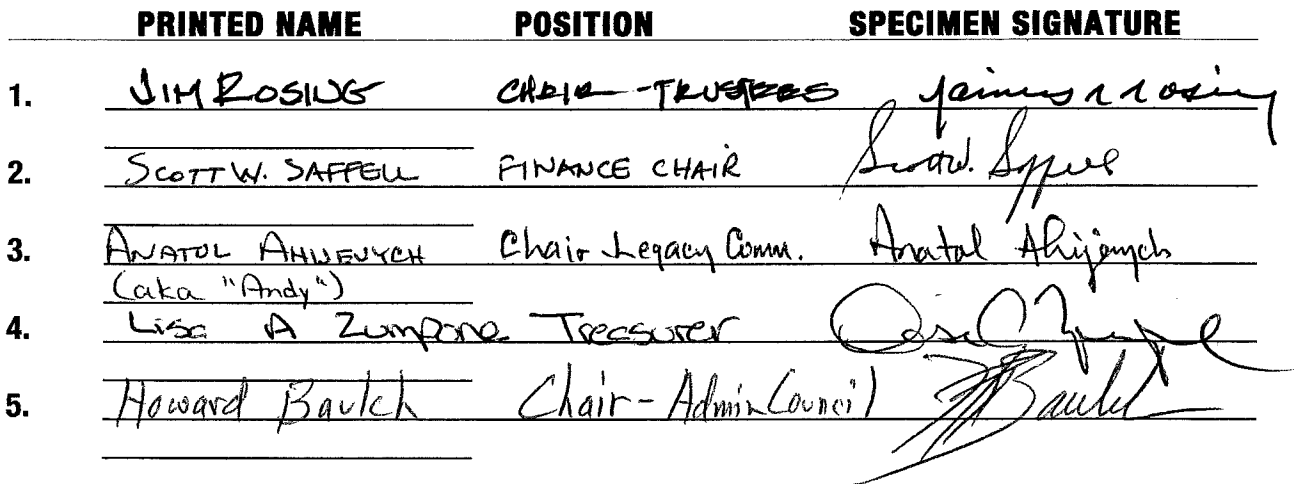 PRINTED NAME POSITION SPECIMEN SIGNATURE
1. JIM ROSING CHAIR - TRUSTEES James R Rosing
2. SCOTT W. SAFFELL FINANCE CHAIR Scott W. Saffell
3. ANATOL AHIJEVYCH Chair Legacy Comm. Anatol Ahijevych
(aka "Andy")
4. Lisa A Zumpone Treasurer
5. Howard Baulch Chair - Admin Council